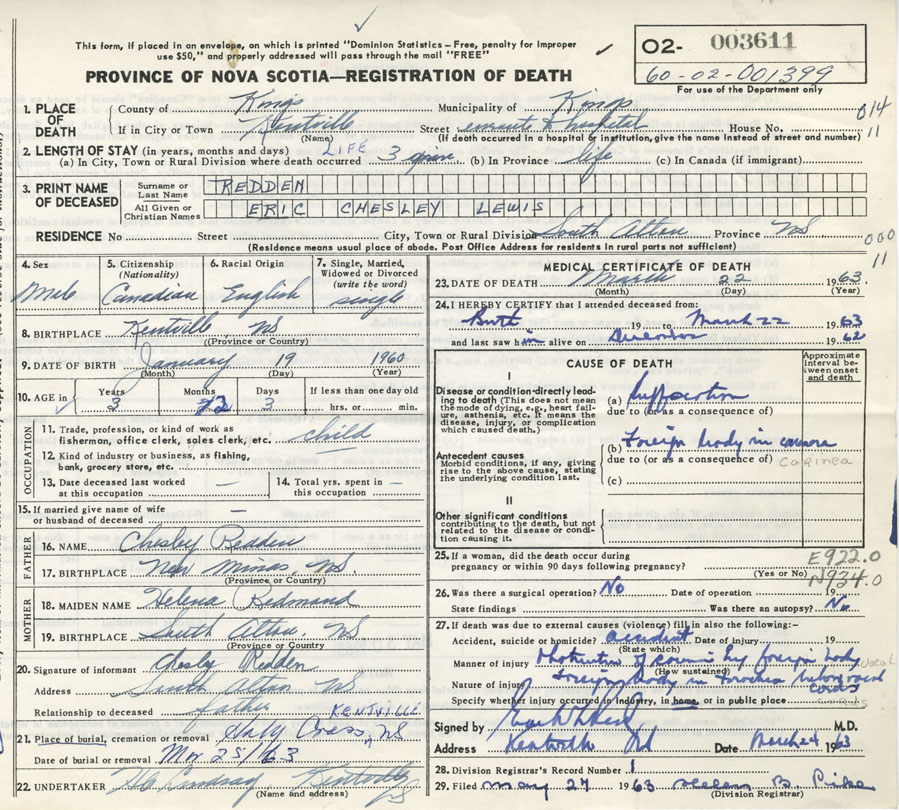 This form, if placed in an envelope, on which is printed "Dominion Statistics – Free, penalty for improper
use $50," and properly addressed will pass through the mail "FREE"
O2- 003611
60-02-001399
For use of the Department only
PROVINCE OF NOVA SCOTIA—REGISTRATION OF DEATH
1. PLACE OF DEATH
County of Kings Municipality of Kings
014
If in City or Town Kentville Street enroute to hospital House No.
11
(Name) (If death occurred in a hospital or institution, give the name instead of street and number)
2. LENGTH OF STAY (in years, months and days) LIFE
(a) In City, Town or Rural Division where death occurred 3 (b) In Province life (c) In Canada (if immigrant)
3. PRINT NAME OF DECEASED
Surname or Last Name REDDEN
All Given or Christian Names ERIC CHESLEY LEWIS
RESIDENCE No Street City, Town or Rural Division South Alton Province NS
000
11
(Residence means usual place of abode. Post Office Address for residents in rural parts not sufficient)
4. Sex
Male
5. Citizenship (Nationality)
Canadian
6. Racial Origin
English
7. Single, Married, Widowed or Divorced (write the word)
single
8. BIRTHPLACE Kentville NS
(Province or Country)
9. DATE OF BIRTH January 19 1960
(Month) (Day) (Year)
10. AGE in
Years Months Days If less than one day old
3 2 3 hrs. or min.
OCCUPATION
11. Trade, profession, or kind of work as
fisherman, office clerk, sales clerk, etc. child
12. Kind of industry or business, as fishing,
bank, grocery store, etc. —
13. Date deceased last worked
at this occupation —
14. Total yrs. spent in
this occupation —
15. If married give name of wife
or husband of deceased —
FATHER
16. NAME Chesley Redden
17. BIRTHPLACE New Minas, NS
(Province or Country)
MOTHER
18. MAIDEN NAME Helena Redmond
19. BIRTHPLACE South Alton, NS
(Province or Country)
20. Signature of informant Chesley Redden
Address South Alton NS
Relationship to deceased father
KENTVILLE
21. Place of burial, cremation or removal Holy Cross, NS
Date of burial or removal Mar 25/63
22. UNDERTAKER Lindsay Kentville NS
(Name and address)
MEDICAL CERTIFICATE OF DEATH
23. DATE OF DEATH March 22 1963
(Month) (Day) (Year)
24. I HEREBY CERTIFY that I attended deceased from:
Birth 19 to March 22 1963
and last saw him alive on December 1962
CAUSE OF DEATH
Approximate interval between onset and death
I
Disease or condition directly leading to death (This does not mean the mode of dying, e.g., heart failure, asthenia, etc. It means the disease, injury, or complication which caused death.)
(a) Suffocation
due to (or as a consequence of)
Antecedent causes
Morbid conditions, if any, giving rise to the above cause, stating the underlying condition last.
(b) Foreign body in
due to (or as a consequence of)
(c)
II
Other significant conditions
contributing to the death, but not related to the disease or condition causing it.
25. If a woman, did the death occur during
pregnancy or within 90 days following pregnancy?
(Yes or No)
E922.0
N934.0
26. Was there a surgical operation? No Date of operation 19
State findings Was there an autopsy? No
27. If death was due to external causes (violence) fill in also the following:-
Accident, suicide or homicide? accident Date of injury 19
(State which)
Manner of injury Obstruction of by foreign body
(How sustained)
Nature of injury foreign body in trachea below vocal cords
vocal
Specify whether injury occurred in Industry, in home, or in public place
Signed by M.D.
Address Kentville NS Date March 24 1963
28. Division Registrar's Record Number 1
29. Filed May 27 1963 Helen B. Pike
(Division Registrar)